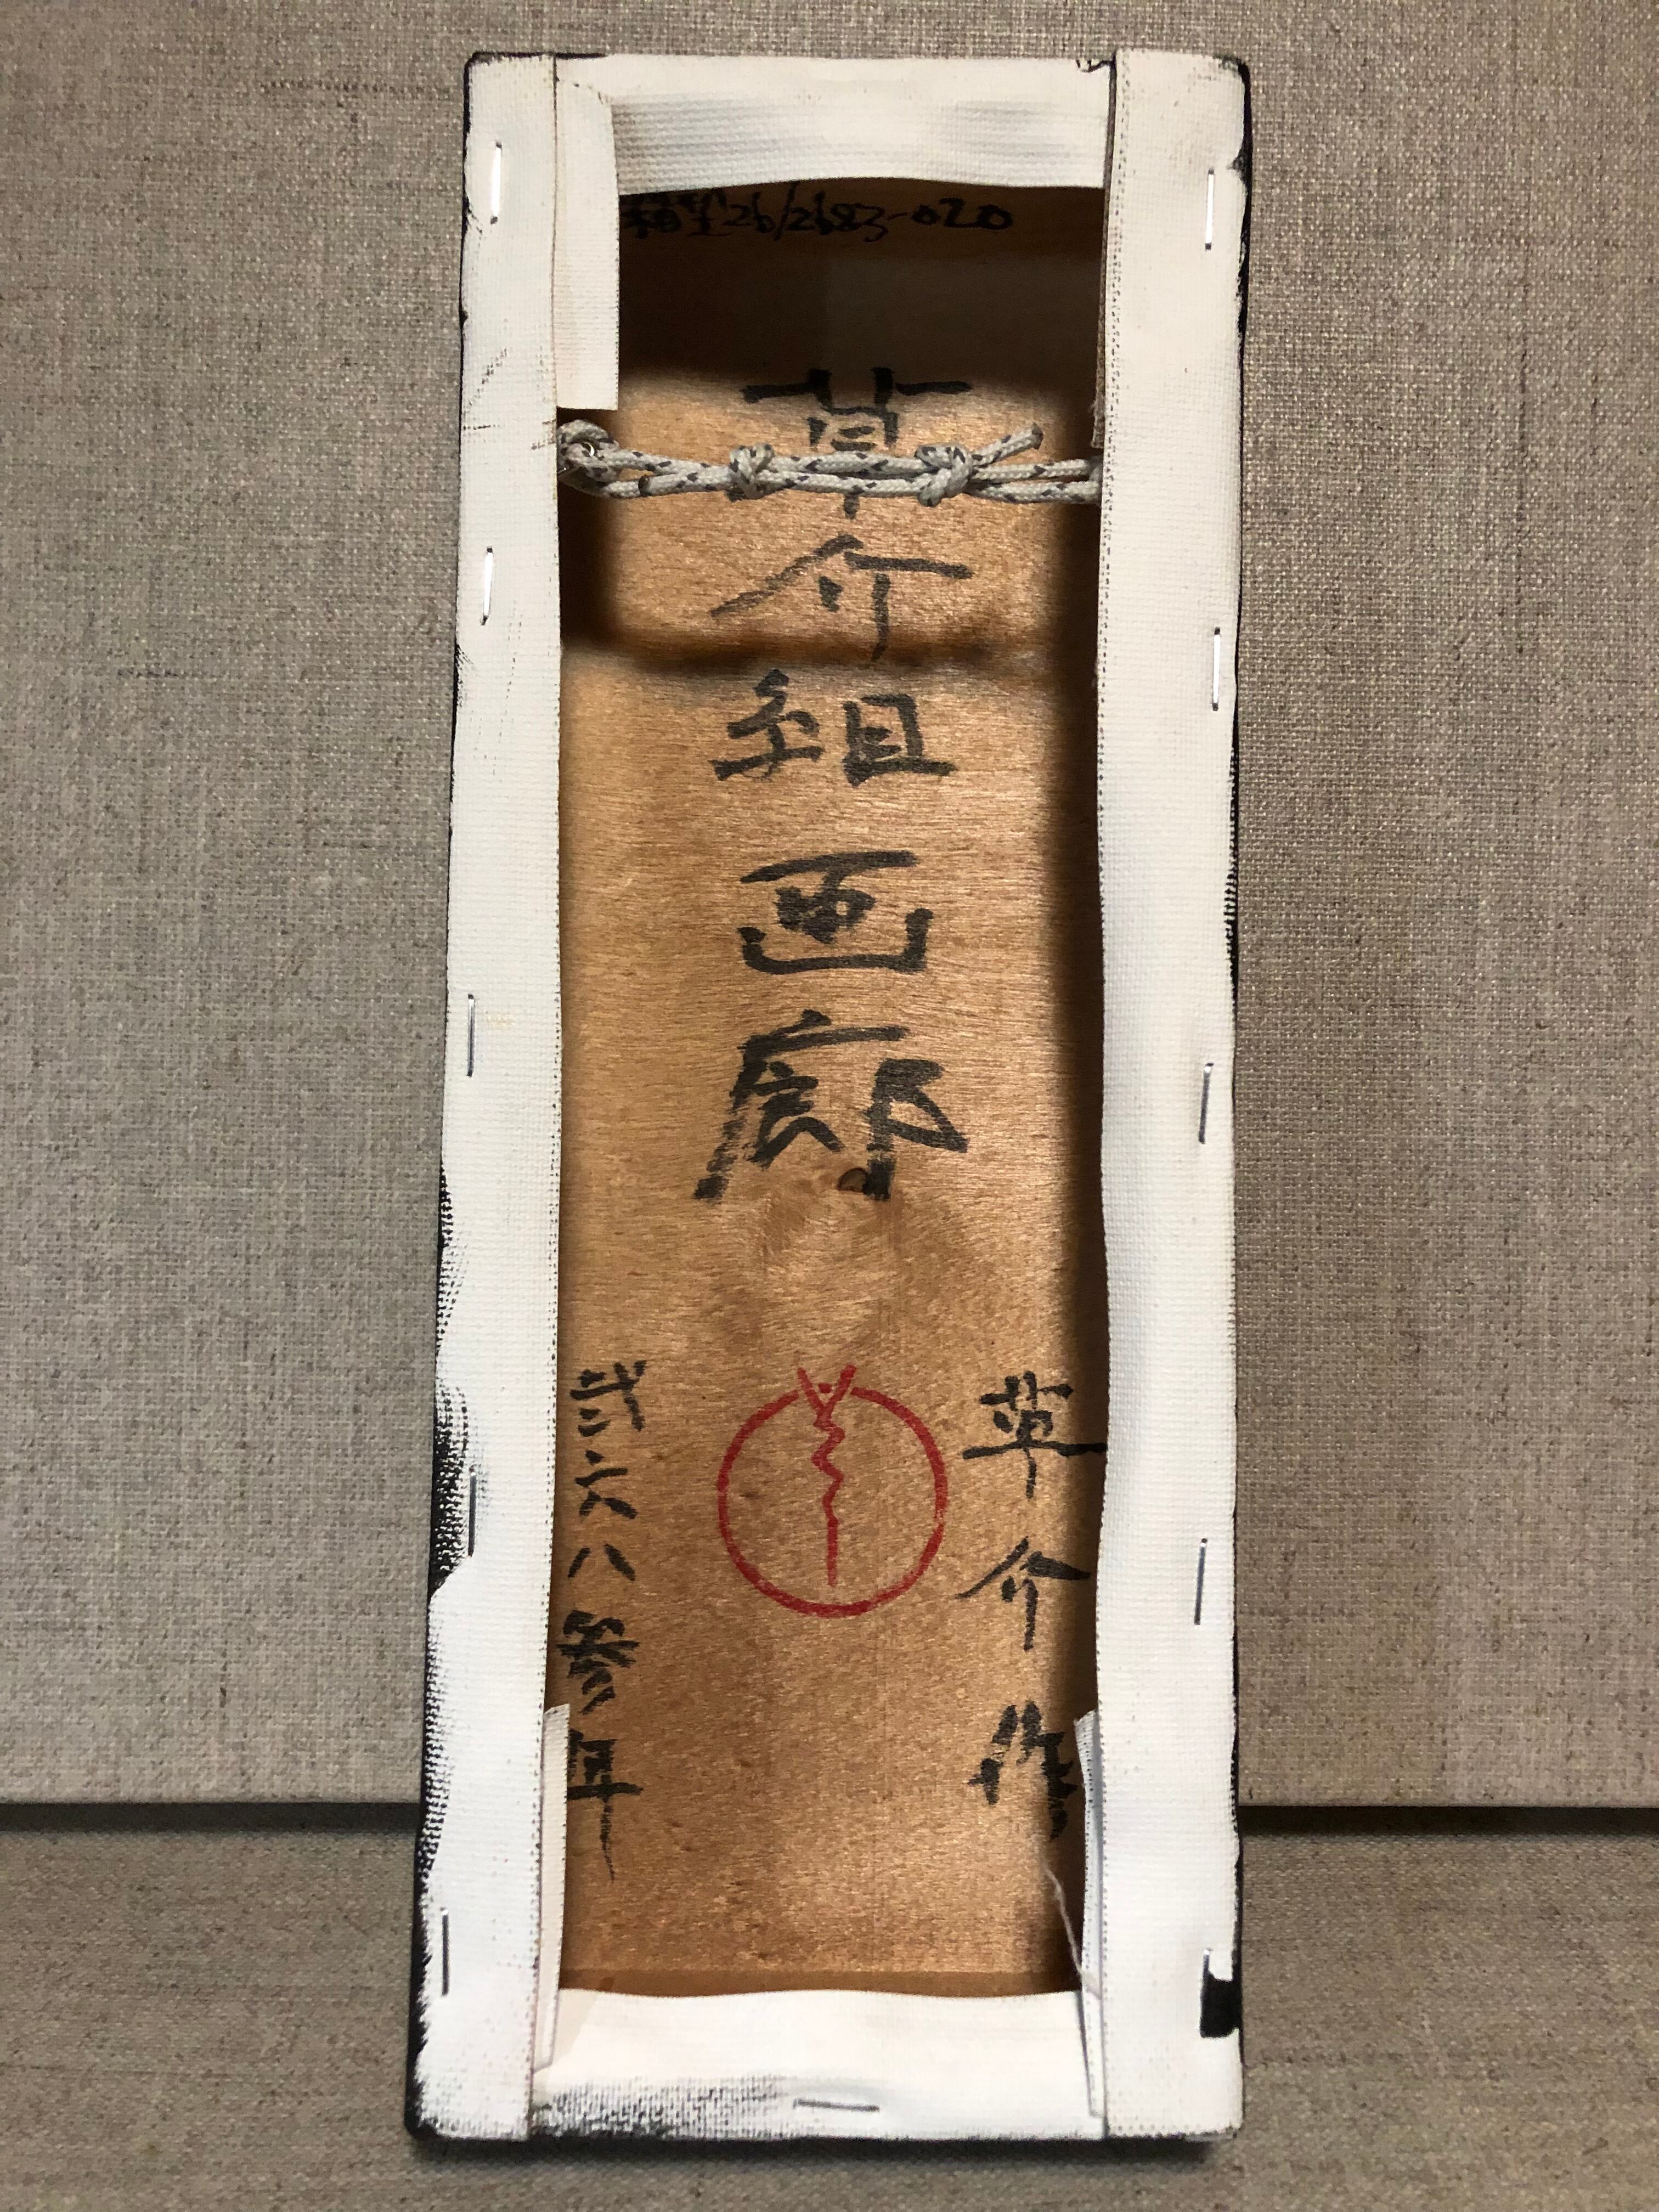 26/2683-020
草介組画廊
草介作
弐六八参年